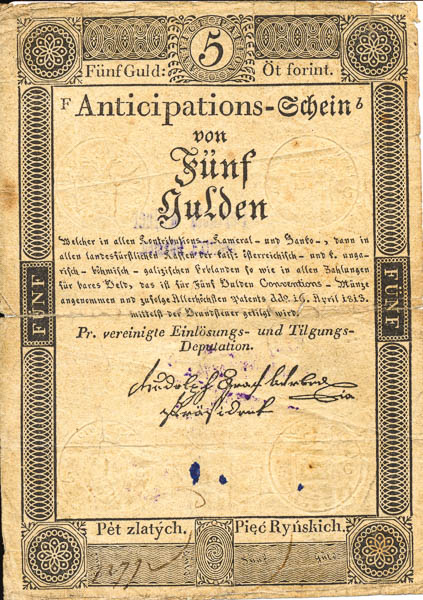 5
Fünf Guld: Öt forint.
F Anticipations-Schein b
von
Fünf
Gulden
Welcher in allen Contributions-, Kameral- und Banko-, dann in
allen landesfürstlichen Kassen der kais: österreichisch- und k. unga-
risch- böhmisch- galizischen Erblanden so wie in allen Zahlungen
für bares Geld, das ist für Fünf Gulden Conventions-Münze
angenommen und zufolge Allerhöchsten Patents ddo. 16. April 1813.
mittelst der Grundsteuer getilgt wird.
Pr. vereinigte Einlösungs- und Tilgungs-
Deputation.
Rudolph Graf
Präsident
FÜNF
FÜNF
Pět zlatých. Pięć Ryńskich.